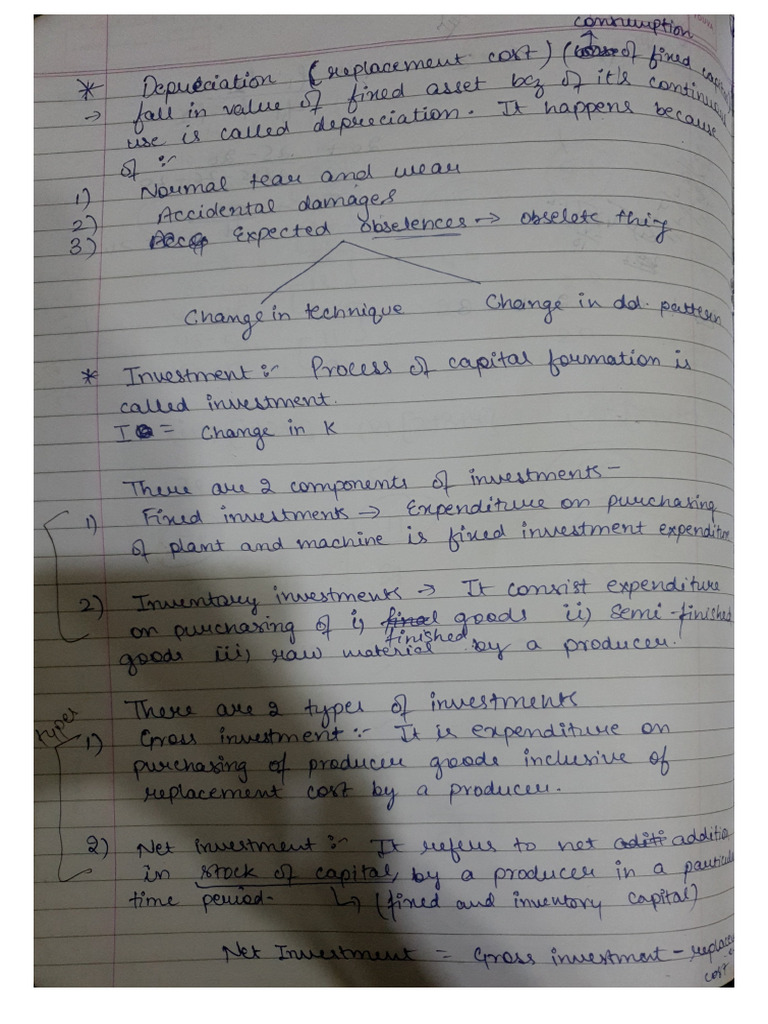 consumption
* Depreciation (replacement cost) (of fixed capital
→ fall in value of fixed asset bcz of it's continuous
use is called depreciation. It happens because
of :-
1) Normal tear and wear
2) Accidental damages
3) Expected obselences → obselete thing
Change in technique Change in dd. pattern
* Investment :- Process of capital formation is
called investment.
I = Change in K
There are 2 components of investments -
1) Fixed investments → Expenditure on purchasing
of plant and machine is fixed investment expenditure
2) Inventory investments → It consist expenditure
on purchasing of i) final goods ii) semi-finished
finished
goods iii) raw material by a producer.
There are 2 types of investments
types
1) Gross investment :- It is expenditure on
purchasing of producer goods inclusive of
replacement cost by a producer.
2) Net investment :- It refers to net additi additio
in stock of capital, by a producer in a particula
time period. ↳ (fixed and inventory capital)
Net Investment = Gross investment - replace
cost